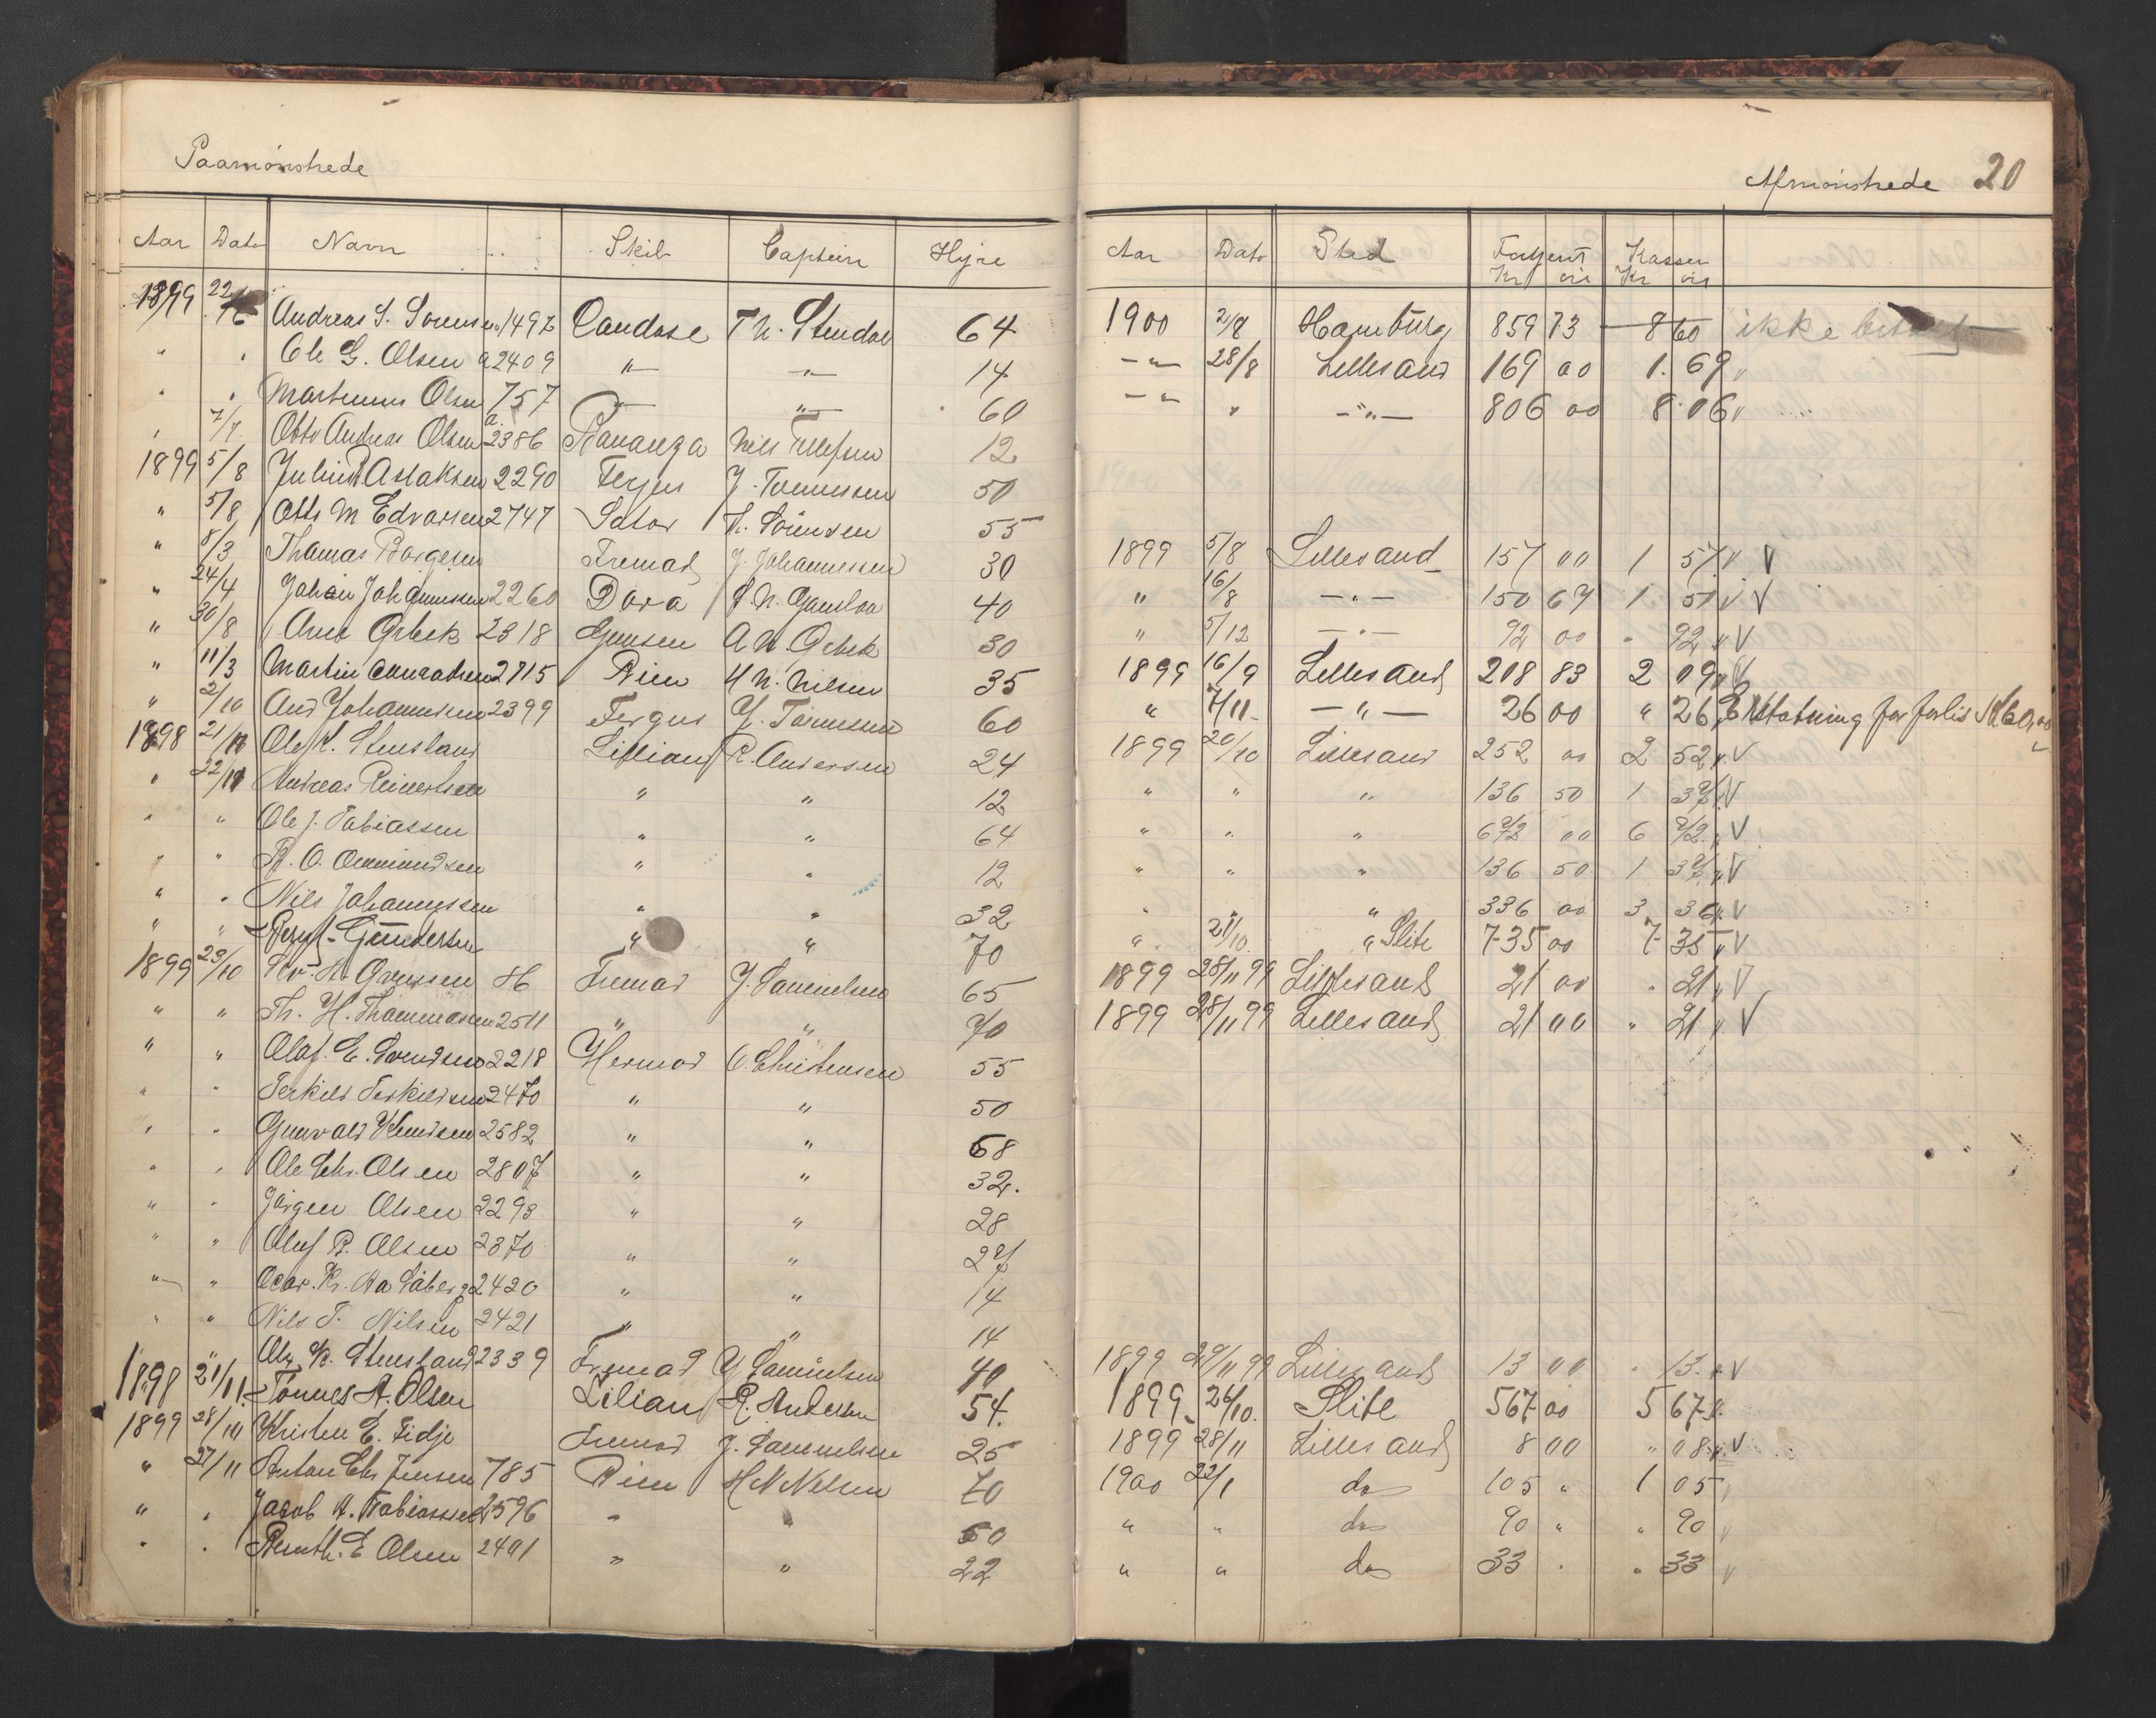 Paamönstrede
Afmönstrede 20
Aar Dato Navn Skib Captein Hyre
Aar Dato Sted Fortjent Kr öre Kassen Kr öre
1899 22/ Andreas S. 1497 Th. 64 1900 2/8 Hamburg 859 73 8 60 ikke
" " Ole G. Olsen a 2409 " " 14 " 28/8 Lillesand 169 00 1. 69
" " Martinius Olsen 757 " " 60 " " " 806 00 8 06 v
" 7/7 Otto Andreas Olsen a. 2386 Bonanza Nils Tellefsen 12
1899 5/8 Julius Aslaksen 2290 Fergus J. Tönnessen 50
" 5/8 Otto M Edvarsen 2747 Sator H. Sörensen 55
" 8/3 Thomas Borgesen Fremad J. Johannessen 30 1899 5/8 Lillesand 157 00 1 57 v V
" 24/4 Johan Johannesen 2260 Dora 40 " 16/8 " 150 67 1 51 v V
" 30/8 Arne Grbek 2318 A N. Grbek 30 " 5/12 " 92 00 " 92 " V
" 11/3 Martin Conradsen 2715 Rien H N. Nilsen 35 1899 16/9 Lillesand 208 83 2 09 " V
" 2/10 And Johannesen 2399 Fergus J. Tönnesen 60 " 7/11 " 26 00 " 26 Erstatning for forlis Kr 60,00
1898 21/11 Ole K. Stensland Lillian R. Andersen 24 1899 20/10 Lillesand 252 00 2 52 " V
" 22/11 Andreas Reinertsen " " 12 " " " 136 50 1 37 " V
" " Ole J. Tobiassen " " 64 " " " 672 00 6 72 " V
" " R. O. Ommundsen " " 12 " " " 136 50 1 37 " V
" " Nils Johannessen " " 32 " " " 336 00 3 36 " V
" " Gundersen " " 70 " 21/10 " Slite 735 00 7 35 " V
1899 23/10 Fremad J. Samuelsen 65 1899 28/11 99 Lillesand 21 00 " 21 " V
" " Th. H. Thommasen 2511 " " 70 1899 28/11 99 Lillesand 21 00 " 21 " V
" " Olaf. E. Svendsen 2218 Hermod O. Christensen 55
" " Terkild Terkildsen 2470 " " 50
" " Gunvald Knudsen 2582 " " 68
" " Ole Chr. Olsen 2807 " " 32.
" " Jörgen Olsen 2293 " " 28
" " Oluf R. Olsen 2370 " " 27
" " 2420 " " 14
" " Nils T. Nilsen 2421 " " 14
" Ole K. Stensland 2339 Fremad J Samuelsen 40 1899 29/11 99 Lillesand 13 00 " 13 " V
1898 21/11. Tönnes A. Olsen Lilian R. Andersen 54. 1899 26/10. Slite 567 00 5 67
1899 28/10 Kristen E. Tidje Fremad J. Samuelsen 25 1899 28/11 Lillesand 8 00 " 08 " V
" 27/11 Anton Chr Jensen 785 Rien H N Nelsen 70 1900 22/1 do 105 " 1 05
" " Jacob A. Tobiassen 2596 " " 60 " " do 90 " " 90 v
" " Bernth. E Olsen 2401 " " 22 " " do 33 " " 33 v